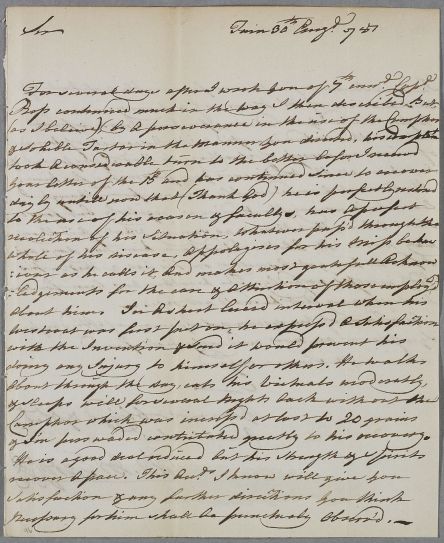 Sir Tain 30th Augt. 1787
For several days after I wrote you of 7th curt. Capt.
Ross continued much in the way I then described. But
(as I believe) by a perseverance in the use of the Camphor
& soluble Tartar in the manner you directed, his disorder
took a considerable turn to the better before I received
your letter of the and has continued since to recover
day by day untill now that (Thank God) he is perfectly restored
to the use of his reason & facultys, has a perfect
recollection of his Situation, & whatever pass'd through the
whole of his disease, Appologises for his behav
-iour as he calls it and makes most gratefull Acknow
-ledgements for the care & Attention of those employ'd
about him. In his first lucid interval when his
was first put on, he express'd a Satisfaction
with the Invention & said it would prevent his
doing any Injury to himself or others. He walks
about through the day, eats his Victuals moderately,
& sleeps well for several nights back without the
Camphor which was increased at last to 20 grains
& I am perswaded contributed greatly to his recovery.
He is a good deal reduced but his Strength & Spirits
recover apace. This Acct. I know will give you
Satisfaction & any further directions you think
necessary for him shall be punctually Observ'd.